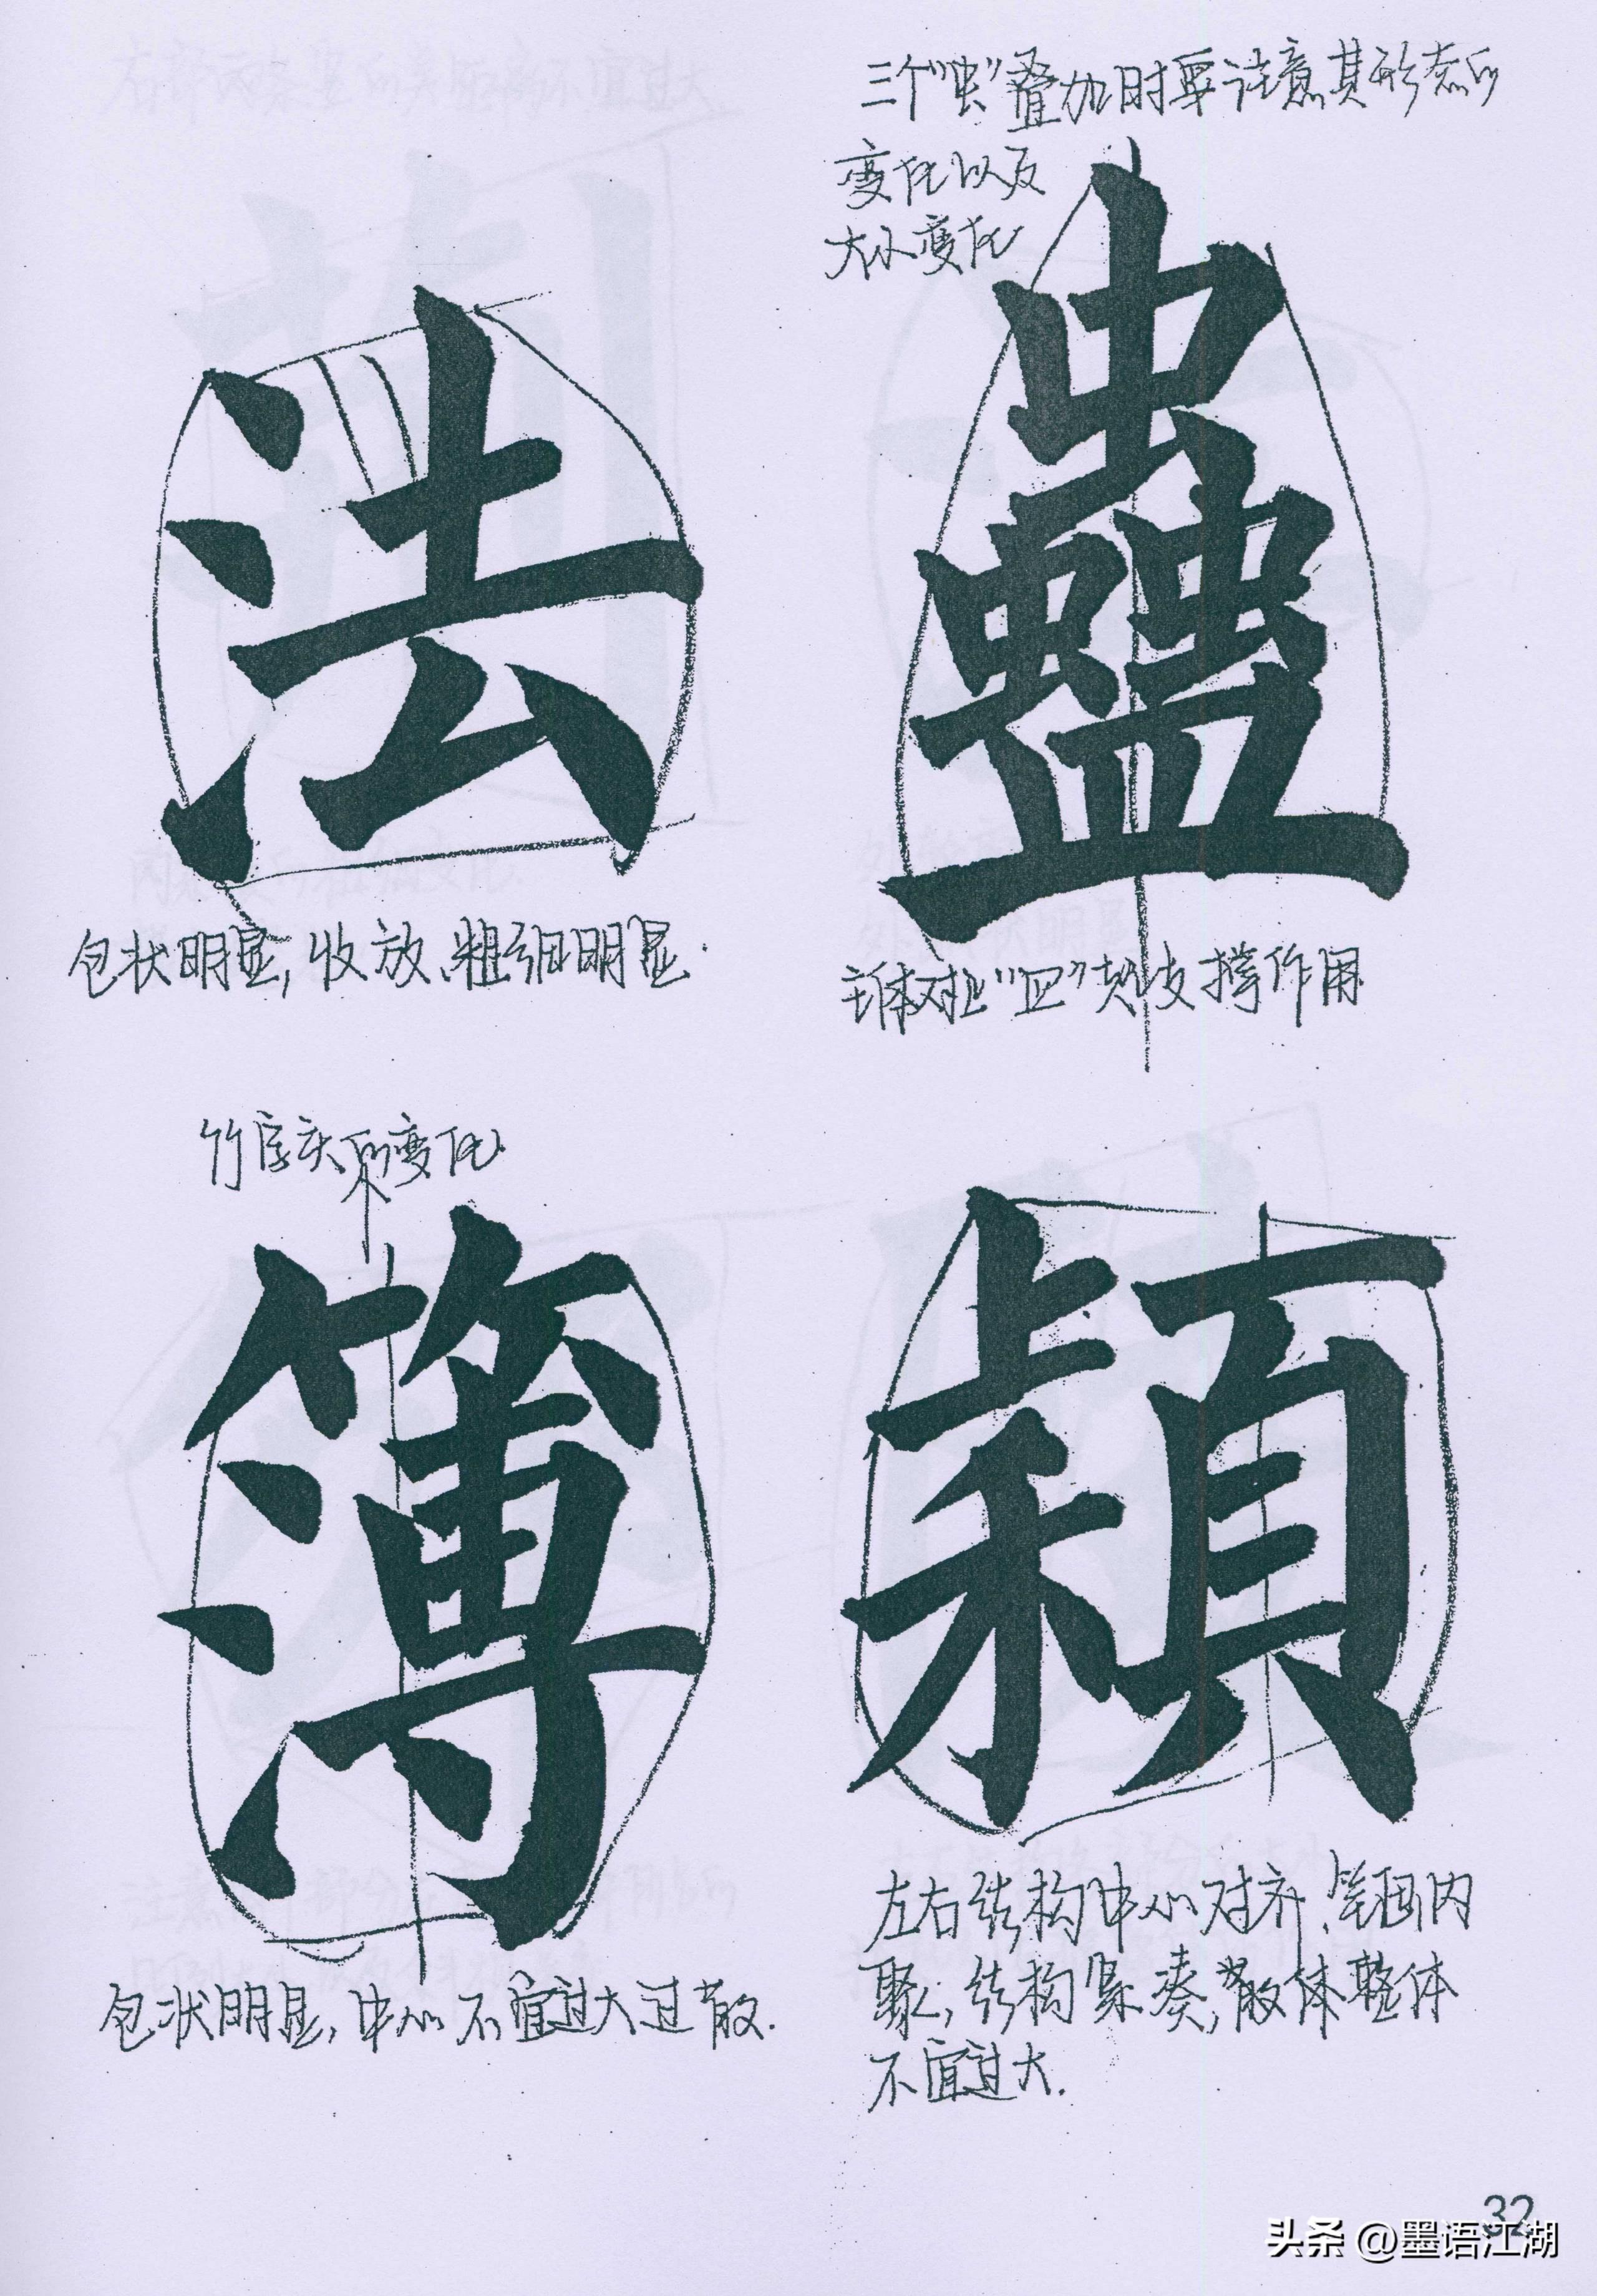 三个"虫"叠加时要注意其形态的
变化以及
大小变化
法
蠱
包状明显，收放、粗细明显.
主体对比"皿"起支撑作用
竹字头的变化
簿
穎
包状明显，中心不宜过大过散.
左右结构中心对齐、笔画内
聚，结构紧凑，散体整体
不宜过大.
32
头条 @墨语江湖